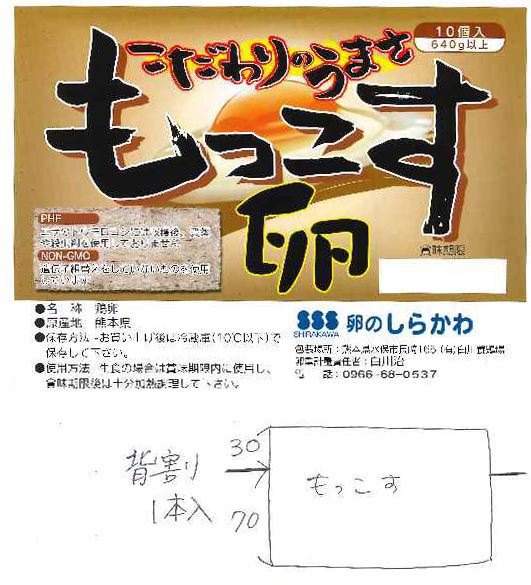 10個入
640g以上
こだわりのうまさ
もっこす
卵
PHF
エサのトウモロコシには収穫後、
や殺虫剤を使用しておりません。
NON-GMO
遺伝子組替えをしていないものを使用
しています。
賞味期限
●名 称 鶏卵
●原産地 熊本県
●保存方法 お買い上げ後は冷蔵庫(10℃以下)で
保存して下さい。
●使用方法 生食の場合は賞味期限内に使用し、
賞味期限後は十分加熱調理して下さい。
SSS 卵のしらかわ
SHIRAKAWA
包装場所:熊本県水俣市長崎165 (有)白川
責任者:白川治
電 話:0966-68-0537
背割り
1本入
30
70
もっこす